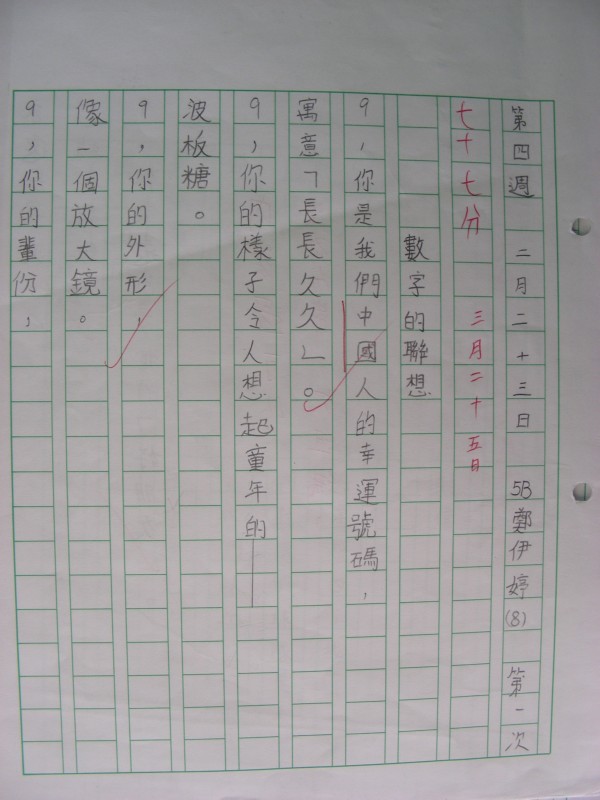 第四週 二月二十三日 5B鄭伊婷(8) 第一次
七十七分 三月二十五日
數字的聯想
9,你是我們中國人的幸運號碼,
寓意「長長久久」。
9,你的樣子令人想起童年的——
波板糖。
9,你的外形,
像一個放大鏡。
9,你的輩份,